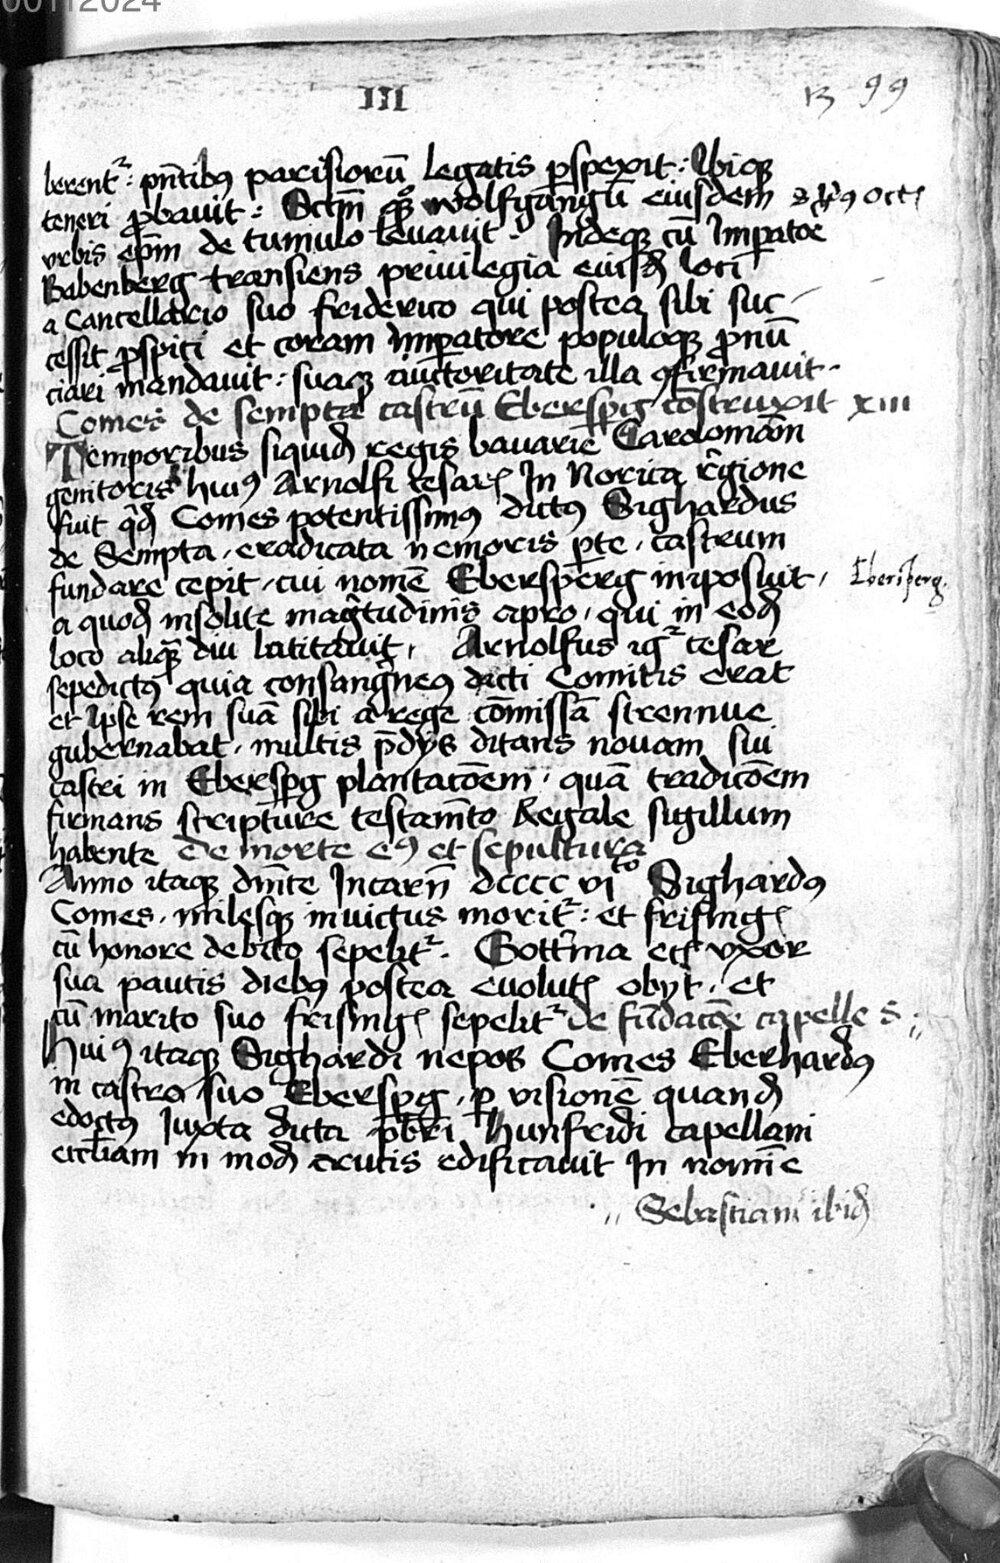 00112024
III
13 99
berentᷣ : pn̄tibꝰ parisiorū legatis ꝑspexit : Ibiqꝫ
teneri ꝓbavit : Sctm̄ qͦqꝫ wolfgangū eiusdem
urbis ep̄m de tumulo levavit . Indeqꝫ cū Impatoͬe
Babenberg transiens privilegia eiusđ loci
a Cancellario suo friderico qui postea sibi suc
cessit ꝓspici et coram imꝑatore populoqꝫ ꝓnū
ciari mandavit : suaqꝫ auctoritate illa ꝯfirmavit .
Comes de sempta castrū Eberspg cōstruxit xiii
Temporibus siquiđ regis bavarie Carolomā̄n
genitoris huiꝰ Arnolfi cesarꝭ In Norica regione
fuit qͥđ Comes potentissimꝰ dictꝰ Sighardus
de Sempta , eradicata nemoris ꝑte , castrum
fundare cepit , cui nomē Ebersperg imposuit ,
Ebersperg .
a quođ insolite magͥtudinis apro , qui in eođ
loco aliqͣ diu latitavit , Arnolfus igᷣ cesar
sepedictꝰ quia consangͥneꝰ dicti Comitis erat
et Ipse rem suā sibi a rege cōmissā strennue
gubernabat , multis p̄dijs ditans novam sui
castri in Eberspg plantacōem , quā tradicōem
firmans scripture testam̄to Regale sigillum
habente de morte eꝰ et sepultura
Anno itaqꝫ dn̄ice Incarn̄ dcccc vi to Sighardꝰ
Comes , milesqꝫ invictus moritᷣ : et frisingꝭ
cū honore debito sepelitᷣ . Gotti̅na etꝭ vxor
sua paucis diebꝰ postea evolutꝭ obijt , et
cū marito suo frisingꝭ sepelitᷣ de fūdacōe capelle s
Huiꝰ itaqꝫ Sighardi nepos Comes Eberhardꝰ
in castro suo Eberspg , ꝑ visionē quanđ
edoctꝰ Iuxta dicta pb̄ri Hunfridi capellani
eccl̄iam in mođ crucis edificavit In nomīe
Sebastiani ibiđ